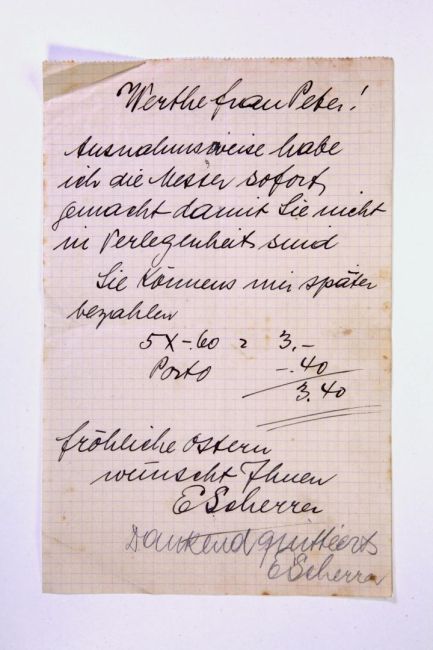 Werthe frau Peter!
Ausnahmsweise habe
ich die Messer sofort
gemacht damit Sie nicht
in Verlegenheit sind
Sie können's mir später
bezahlen
5 X -.60 = 3.-
Porto -.40
3.40
fröhliche Ostern
wünscht Ihnen
E Scherrer
Dankend quittiert
E Scherrer